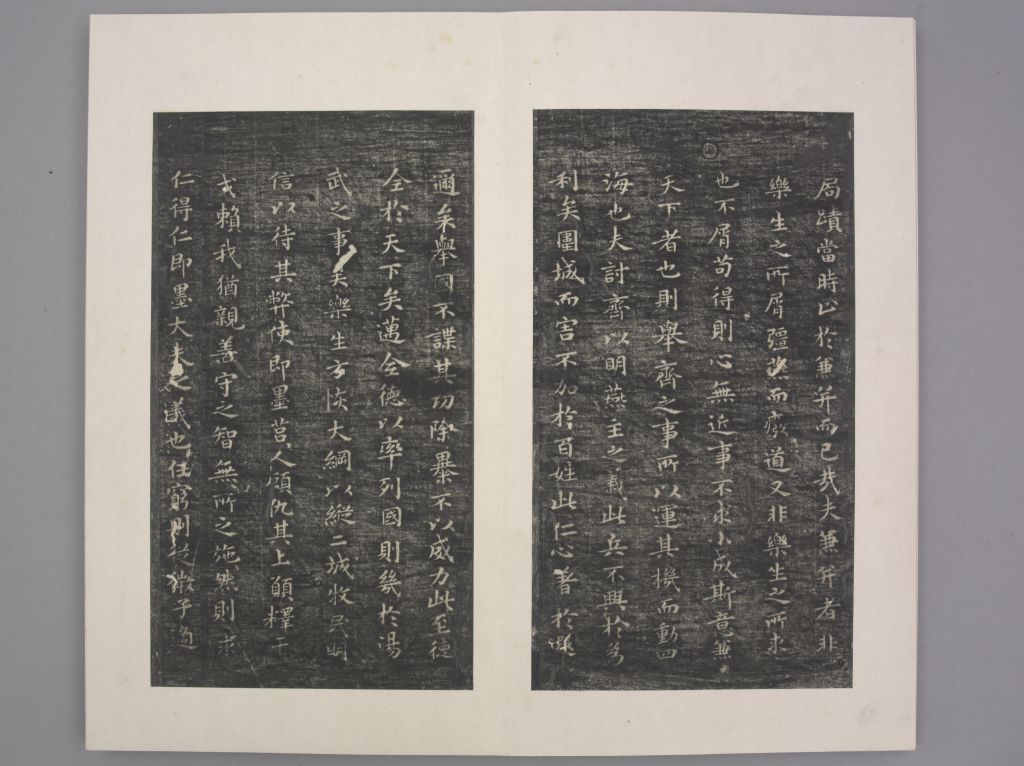 局蹟當時止於兼并而已哉夫兼并者非
樂生之所屑彊燕而廢道又非樂生之所求
也不屑苟得則心無近事不求小成斯意兼
天下者也則舉齊之事所以運其機而動四
海也夫討齊以明燕主之義此兵不興於為
利矣圍城而害不加於百姓此仁心著於遐
邇矣舉國不謀其功除暴不以威力此至德
全於天下矣邁全德以率列國則幾於湯
武之事矣樂生方恢大綱以縱二城牧民明
信以待其弊使即墨莒人顧仇其上願釋干
戈賴我猶親善守之智無所之施然則求
仁得仁即墨大夫之義也任窮則從微子適